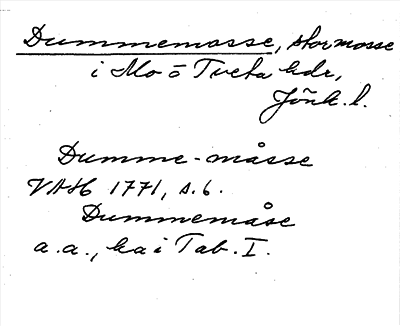 Dummemosse, stor mosse
i Mo o Tveta hdr,
Jönk. l.
Dumme-måsse
VAH 1771, s. 6.
Dummemåse
a.a., ka i Tab. I.